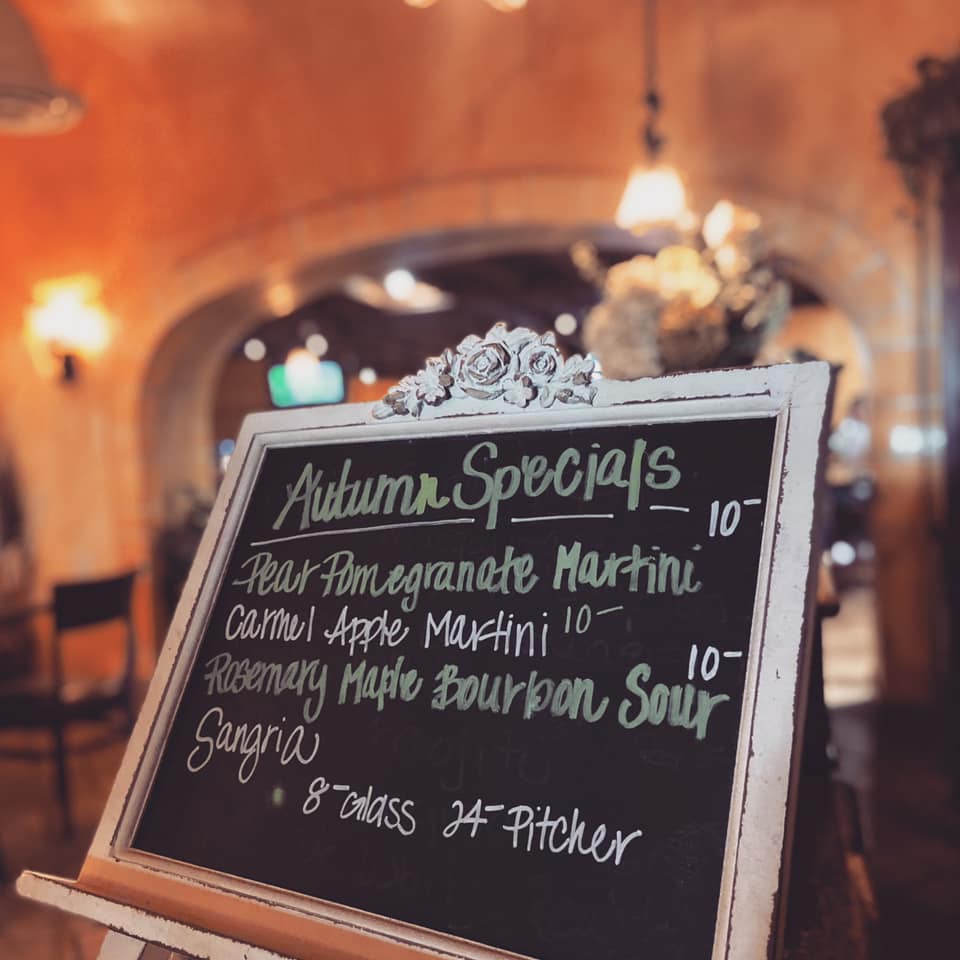 Autumn Specials
Pear Pomegranate Martini 10-
Carmel Apple Martini 10-
Rosemary Maple Bourbon Sour 10-
Sangria
8- Glass 24- Pitcher